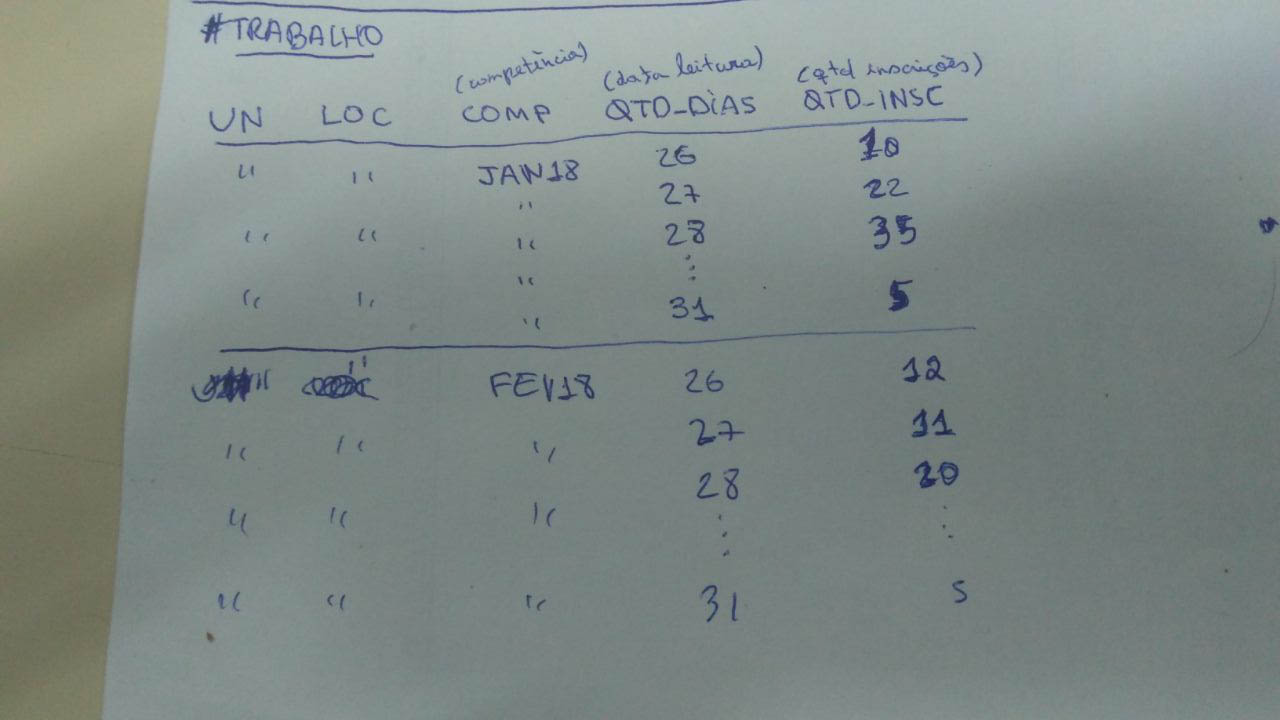 #TRABALHO
(competência) (data leitura) (qtd inscrições)
UN LOC COMP QTD_DIAS QTD_INSC
" " JAN18 26 10
" 27 22
" " " 28 35
" ⋮
" " " 31 5
" " FEV18 26 12
" " " 27 11
28 20
" " " ⋮ ⋮
" " " 31 5